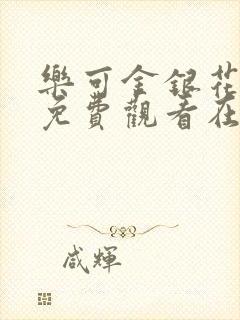 樂可金銀花
免費觀看在
咸輝